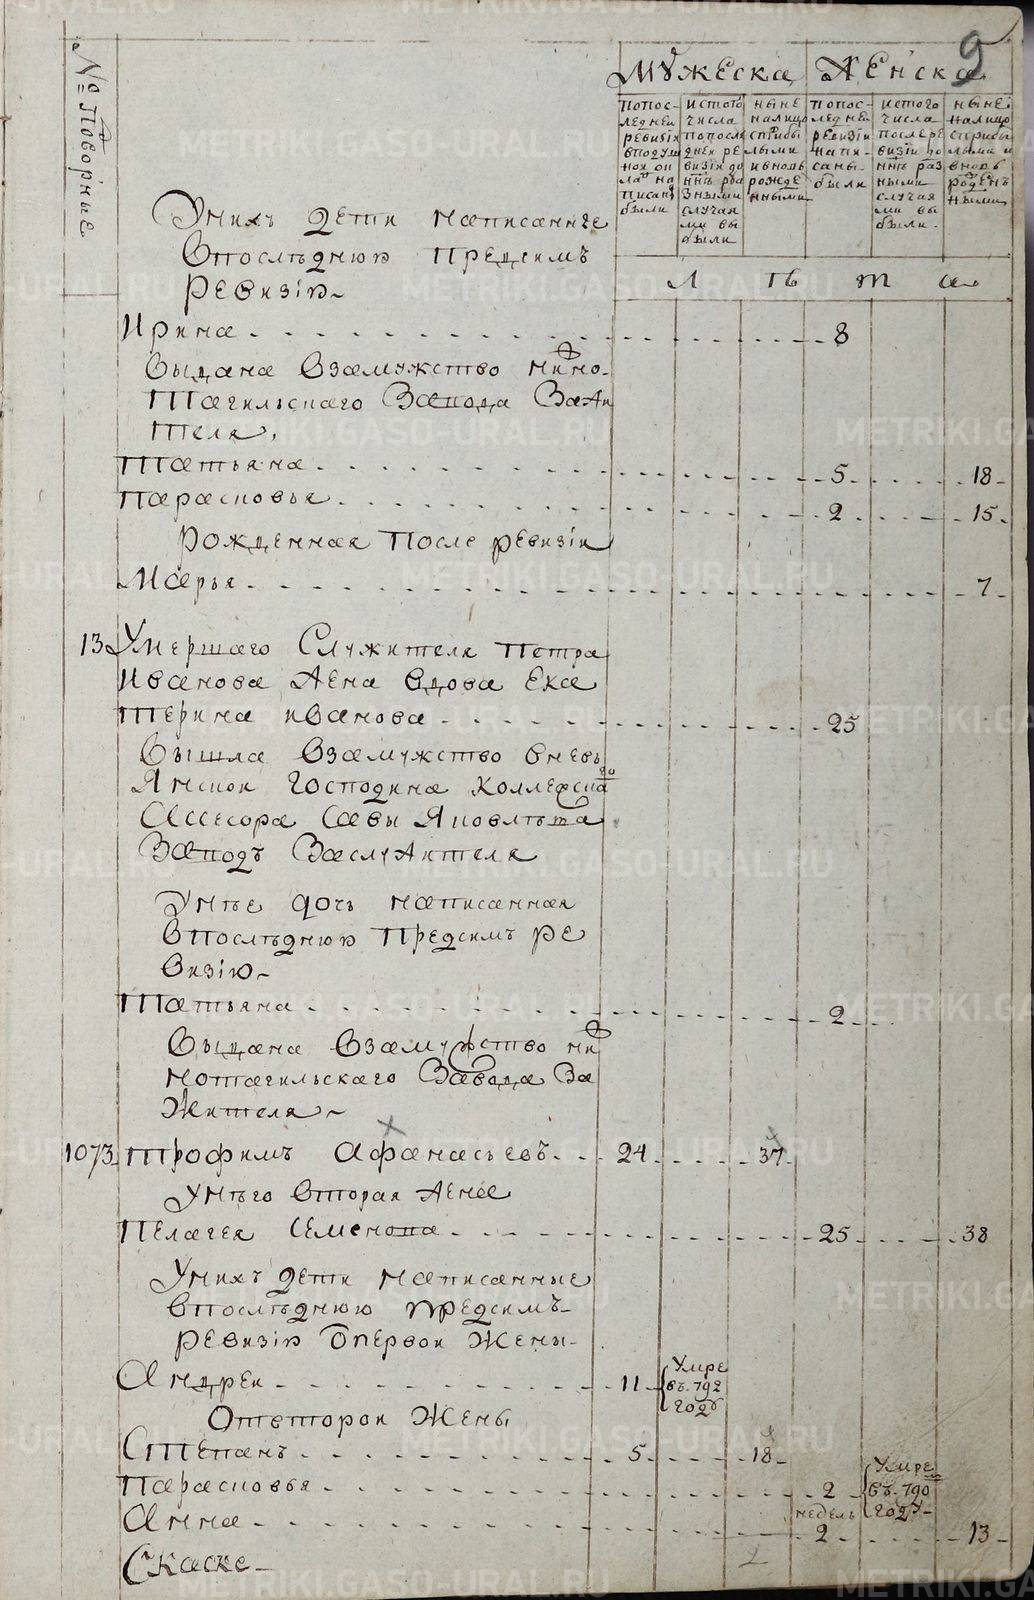 9
№ Подворные
Мужеска
Женска
попос-
ледней
ревизіи
вподуш
ной ок
лад на
писаны
были
истого
числа
попосле
дней ре
визіи до
ннѣ раз
зными
случая
ми вы
были
ныне
налицо
сприбы
лыми
ивновь
рожде
нными
попос-
ледней
ревизіи
напи-
саны
были
истого
числа
послере
визіи до
ннѣ раз
ными
случая
ми вы
были.
ныне
налицо
сприбы
лыми и
вновь
рожден
ными
Л ѣ т а
Унихъ дети написанные
Впослѣднюю предсимъ
Ревизію
Ирина 8
Выдана взамужство нижно-
Тагильскаго Завода Зажи
теля.
Татьяна 5 18
Парасковья 2 15
Рожденная после ревизіи
Марья 7
13 Умершаго Служителя Петра
Иванова Жена вдова Ека
терина иванова 25
Вышла взамужство вневь
янской господина коллежска
го
Ассесора Савы Яковлѣва
Заводъ Заслужителя
Унѣе дочь написанная
впослѣднюю предсимъ ре
визію
Татьяна 2
Выдана взамужство ни
жнотагильскаго Завода За
Жителя
1073 Трофимъ Афанасьевъ 24 37
унѣго вторая жена
Пелагея Семенова 25 38
Унихъ дети написанные
впослѣднюю предсимъ
ревизію отпервой Жены
Андреи 11 Умре
въ 792
году
Отвторой Жены
Степанъ 5 18
Парасковья 2 Умре
въ 790
году
недель
Анна 2 13
Скаске
METRIKI.GASO-URAL.RU